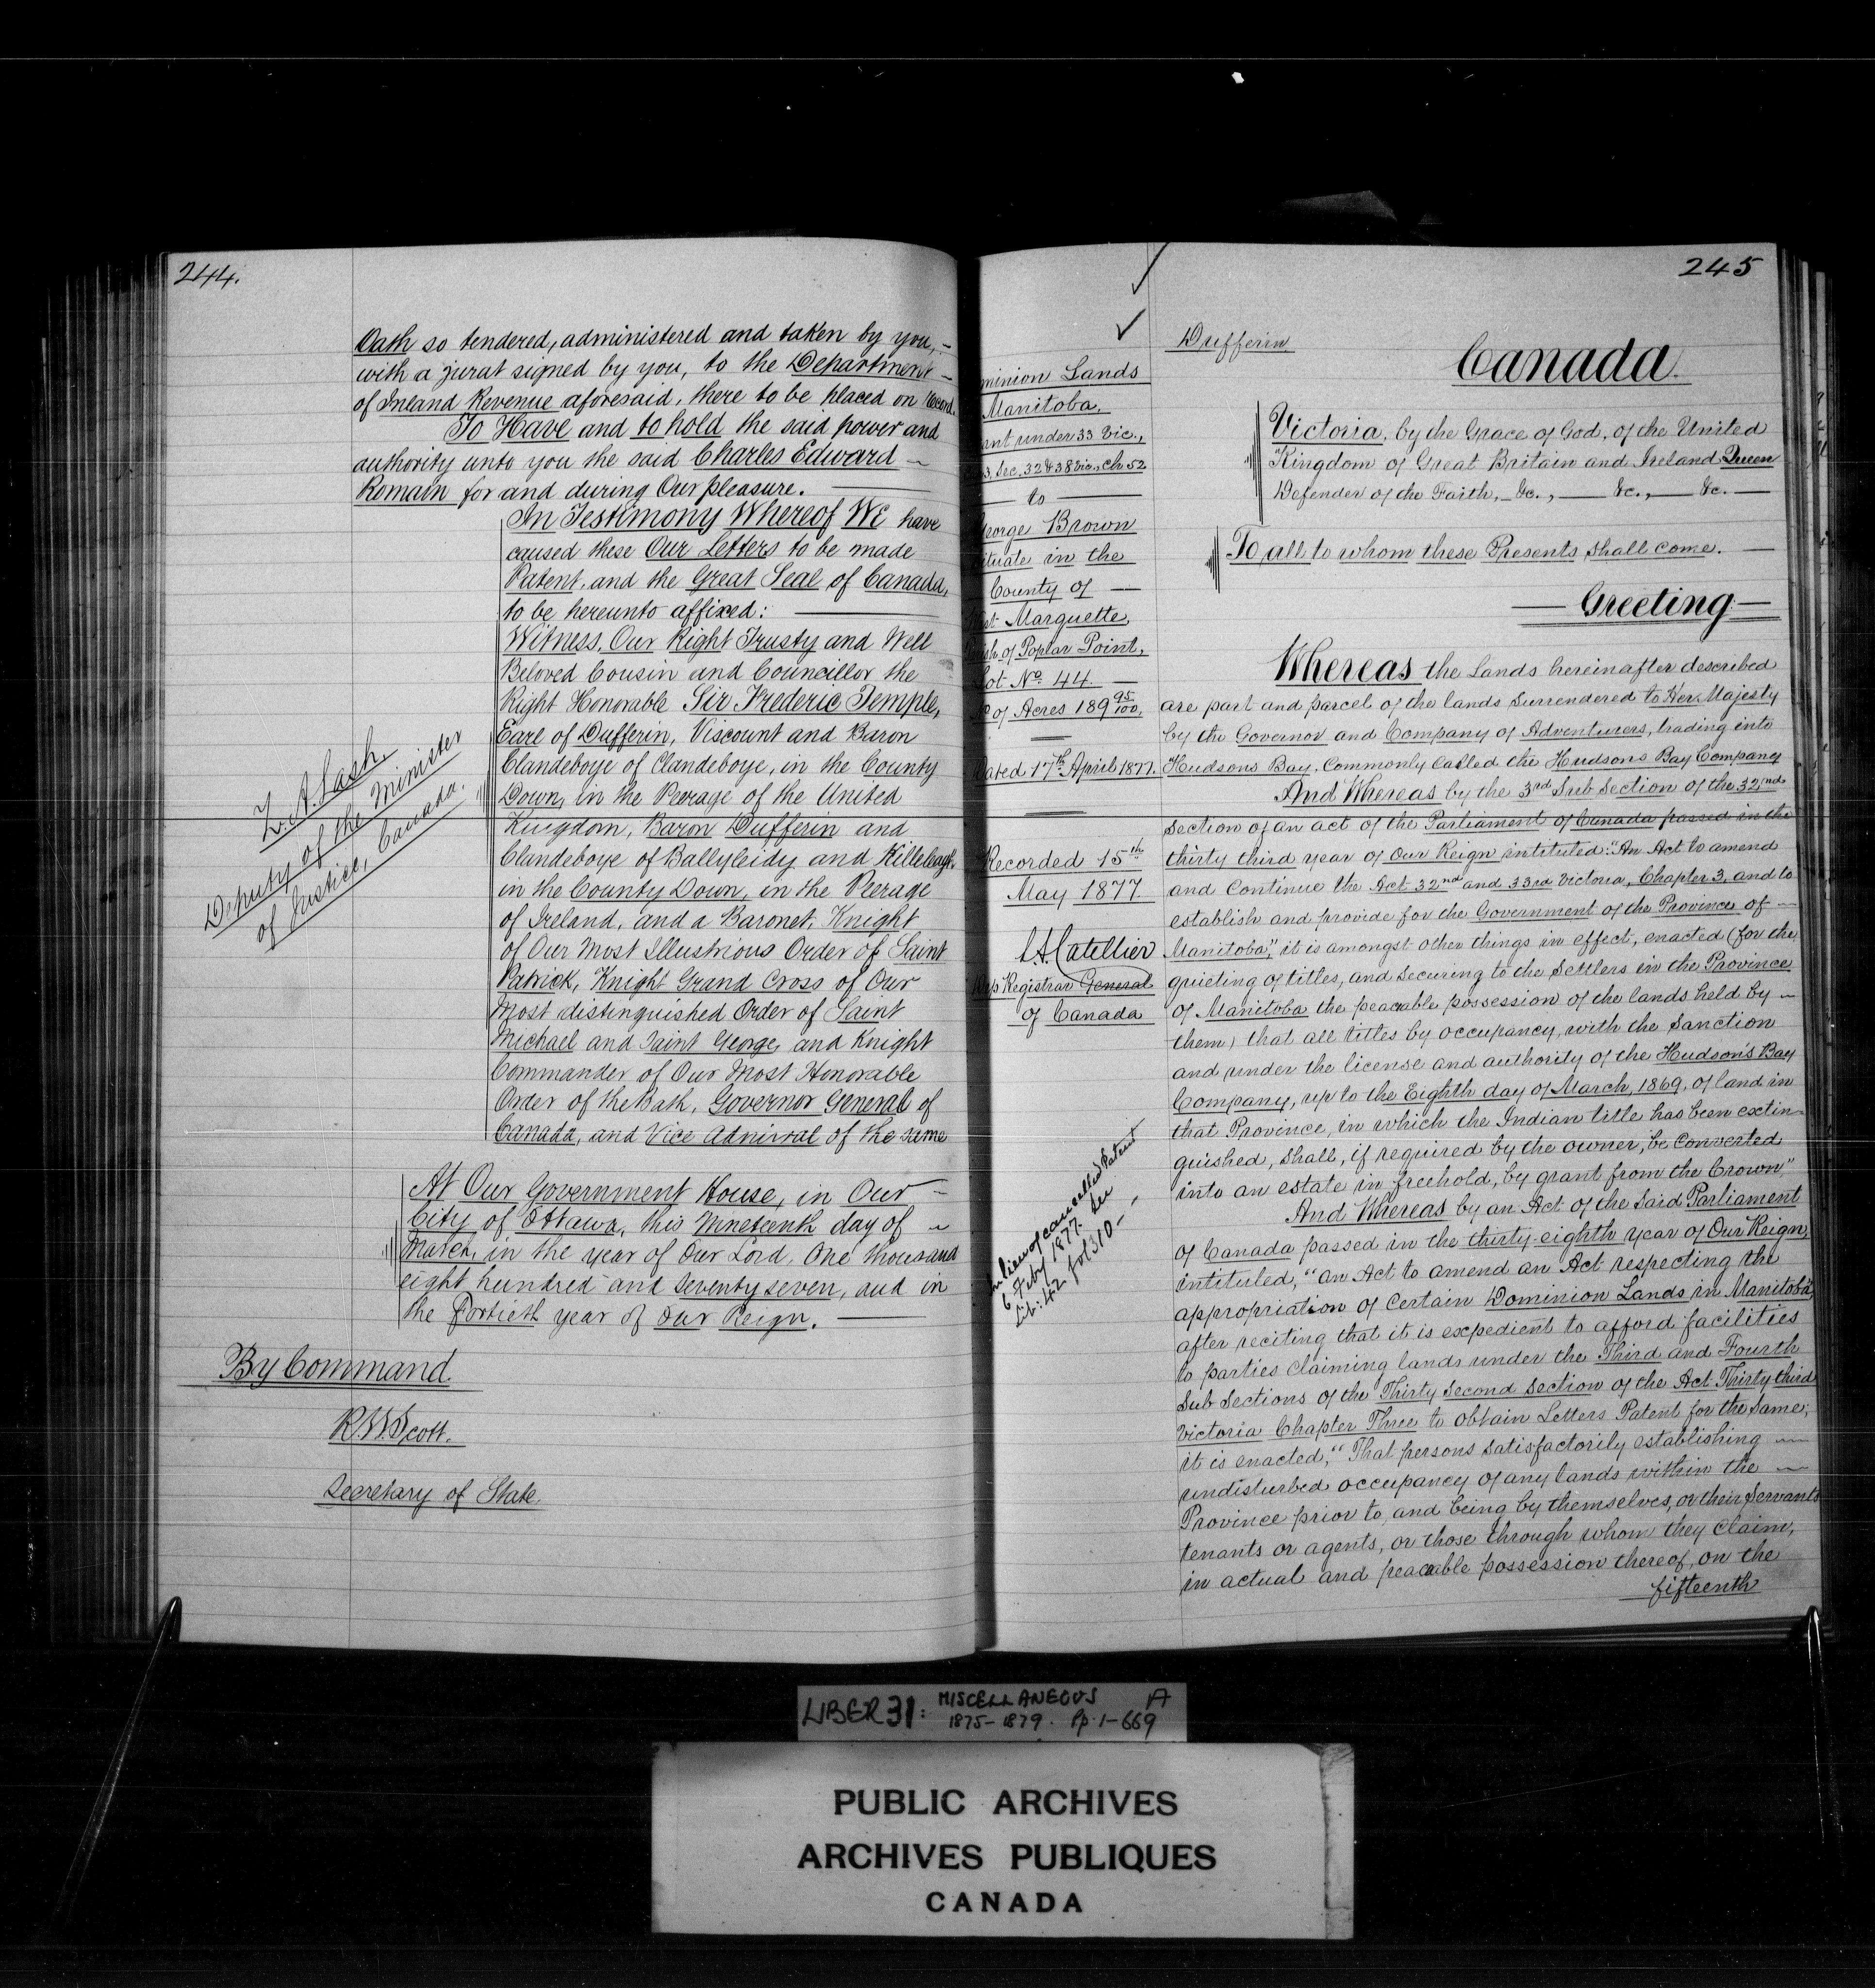 244.
Oath so tendered, administered and taken by you, –
with a jurat signed by you, to the Department –
of Inland Revenue aforesaid, there to be placed on record.
To Have and to hold the said power and
authority unto you the said Charles Edward –
Romain for and during Our pleasure. –
In Testimony Whereof We have
caused these Our Letters to be made
Patent, and the Great Seal of Canada,
to be hereunto affixed: –
Witness, Our Right Trusty and Well
Beloved Cousin and Councillor the
Right Honorable Sir Frederic Temple,
Earl of Dufferin, Viscount and Baron
Clandeboye of Clandeboye, in the County
Down, in the Peerage of the United
Kingdom, Baron Dufferin and
Clandeboye of Ballyleidy and Killeleagh,
in the County Down, in the Peerage
of Ireland, and a Baronet, Knight
of Our Most Illustrious Order of Saint
Patrick, Knight Grand Cross of Our
Most distinguished Order of Saint
Michael and Saint George, and Knight
Commander of Our Most Honorable
Order of the Bath, Governor General of
Canada, and Vice Admiral of the same
At Our Government House, in Our –
City of Ottawa, this Nineteenth day of ~
March, in the year of Our Lord, One thousand
eight hundred and seventy seven, and in
the Fortieth year of Our Reign. –
Z. A. Lash.
Deputy of the Minister
of Justice, Canada.
By Command.
R. W. Scott.
Secretary of State.
245
minion Lands
Manitoba.
ant under 33 Vic.,
3, Sec. 32 & 38 Vic., Ch 52
– to –
eorge Brown
ituate in the
County of –
st Marquette,
ish of Poplar Point,
Lot No. 44. –
o of Acres 189 95/100,
Dated 17th April 1877.
Recorded 15th
May 1877.
L. A. Catellier
Dep Registrar General
of Canada
In lieu of cancelled Patent
6 Feby 1877. See
Lib: 42 fol 310 –
Dufferin
Canada.
Victoria, by the Grace of God, of the United
Kingdom of Great Britain and Ireland Queen
Defender of the Faith, &c., – &c., – &c. –
To all to whom these Presents shall come. –
– Greeting –
Whereas the Lands hereinafter described
are part and parcel of the lands Surrendered to Her Majesty
by the Governor and Company of Adventurers, trading into
Hudsons Bay, Commonly Called the Hudsons Bay Company
And Whereas by the 3rd Sub Section of the 32nd
Section of an act of the Parliament of Canada passed in the
thirty third year of Our Reign intituled: "An Act to amend
and Continue the Act 32nd and 33rd Victoria, Chapter 3, and to
establish and provide for the Government of the Province of –
Manitoba", it is amongst other things in effect, enacted (for the
quieting of titles, and securing to the Settlers in the Province
of Manitoba the peacable possession of the lands held by ~
them) that all titles by occupancy, with the Sanction
and under the license and authority of the Hudson's Bay
Company, up to the Eighth day of March, 1869, of land in
that Province, in which the Indian title has been extin-
guished, shall, if required by the owner, be Converted
into an estate in freehold, by grant from the Crown,"
And Whereas by an Act of the Said Parliament
of Canada passed in the thirty eighth year of Our Reign,
intituled, "an Act to amend an Act respecting the
appropriation of Certain Dominion Lands in Manitoba",
after reciting that it is expedient to afford facilities
to parties Claiming lands under the Third and Fourth
Sub Sections of the Thirty Second Section of the Act Thirty third
Victoria Chapter Three to obtain Letters Patent for the Same,
it is enacted, "That persons satisfactorily establishing ~
undisturbed occupancy of any lands within the ~
Province prior to, and being by themselves, or their Servants
tenants or agents, or those through whom they Claim,
in actual and peacable possession thereof, on the
fifteenth
LIBER 31: MISCELLANEOUS A
1875–1879. Pp. 1–669
PUBLIC ARCHIVES
ARCHIVES PUBLIQUES
CANADA